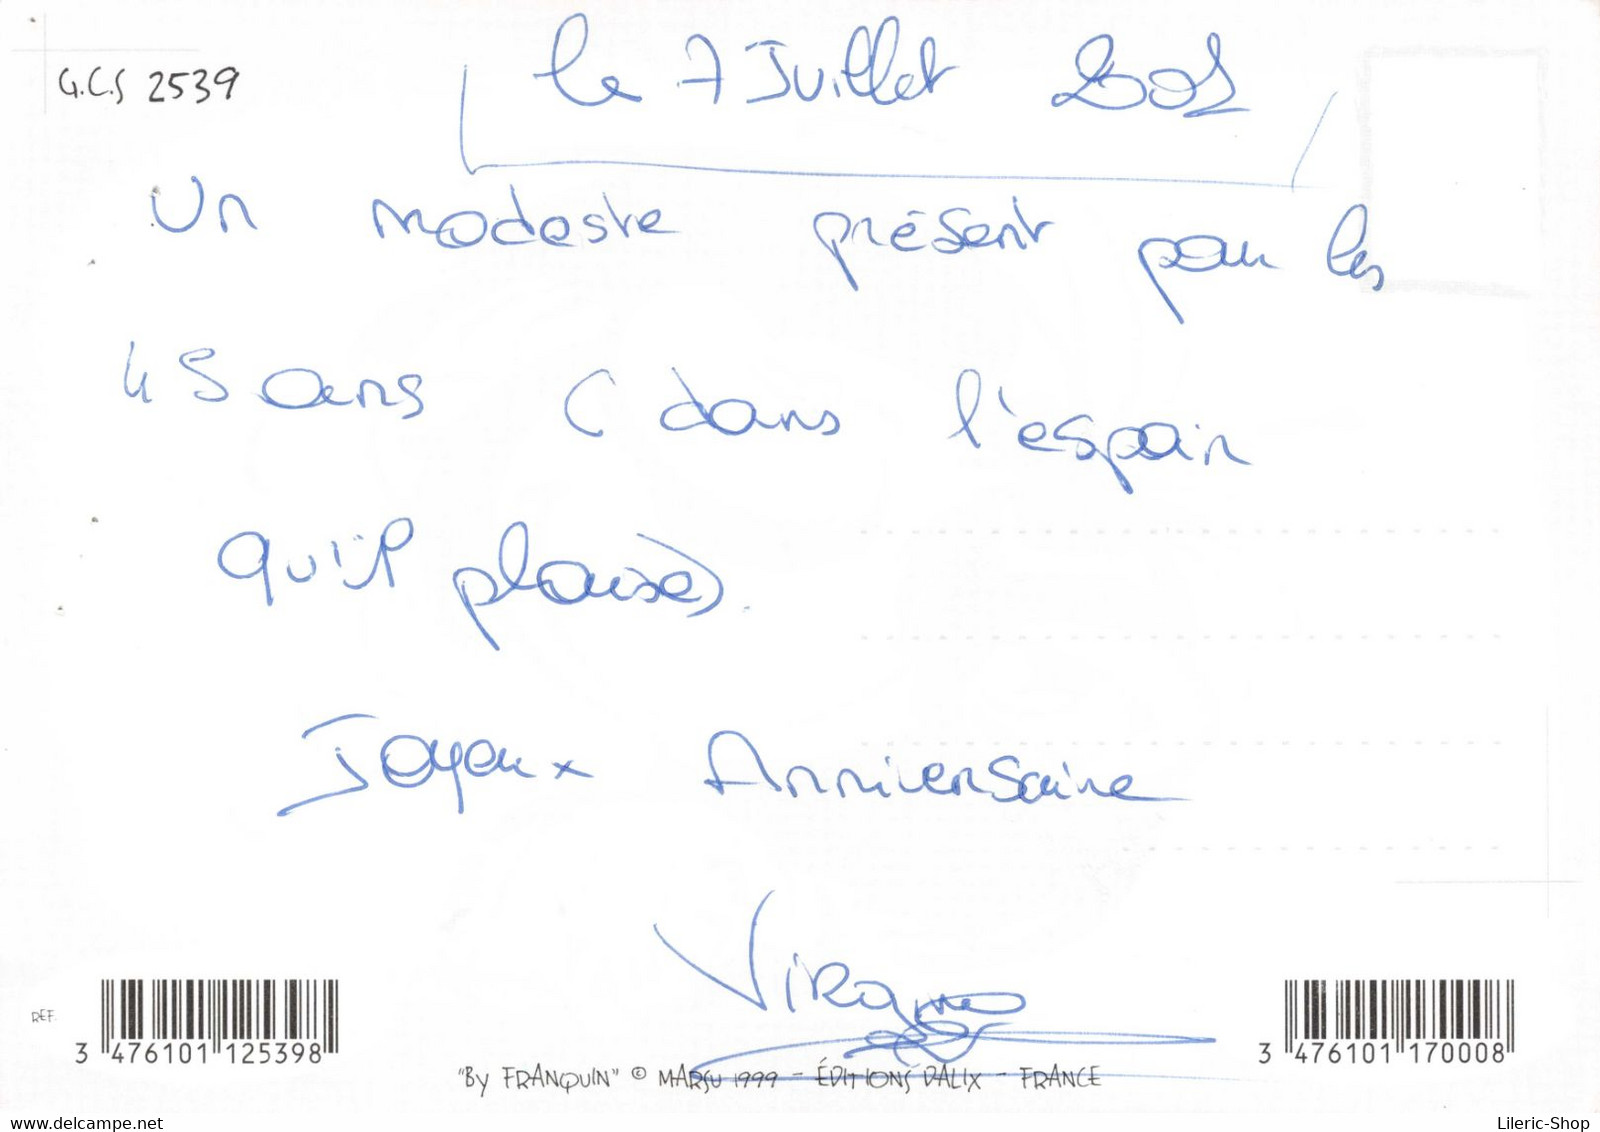 G.C.S 2539
le 7 Juillet
Un modeste présent pour les
45 ans ( dans l'espoir
qu'il plaise).
Joyeux Anniversaire
REF.
3 476101 125398
3 476101 170008
"By FRANQUIN" © MARSU 1999 - ÉDITIONS DALIX - FRANCE
Lileric-Shop